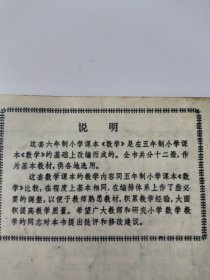 说明
这套六年制小学课本《数学》是在五年制小学课
本《数学》的基础上改编而成的。全书共分十二册，作
为基本教材，供各地选用。
这套数学课本的教学内容同五年制小学课本《数
学》比较，在程度上基本相同，在编排体系上作了些必
要的调整，以便于教师熟悉教材，积累教学经验，大面
积提高教学质量。希望广大教师和研究小学数学教
学的同志对本书提出批评和修改建议。